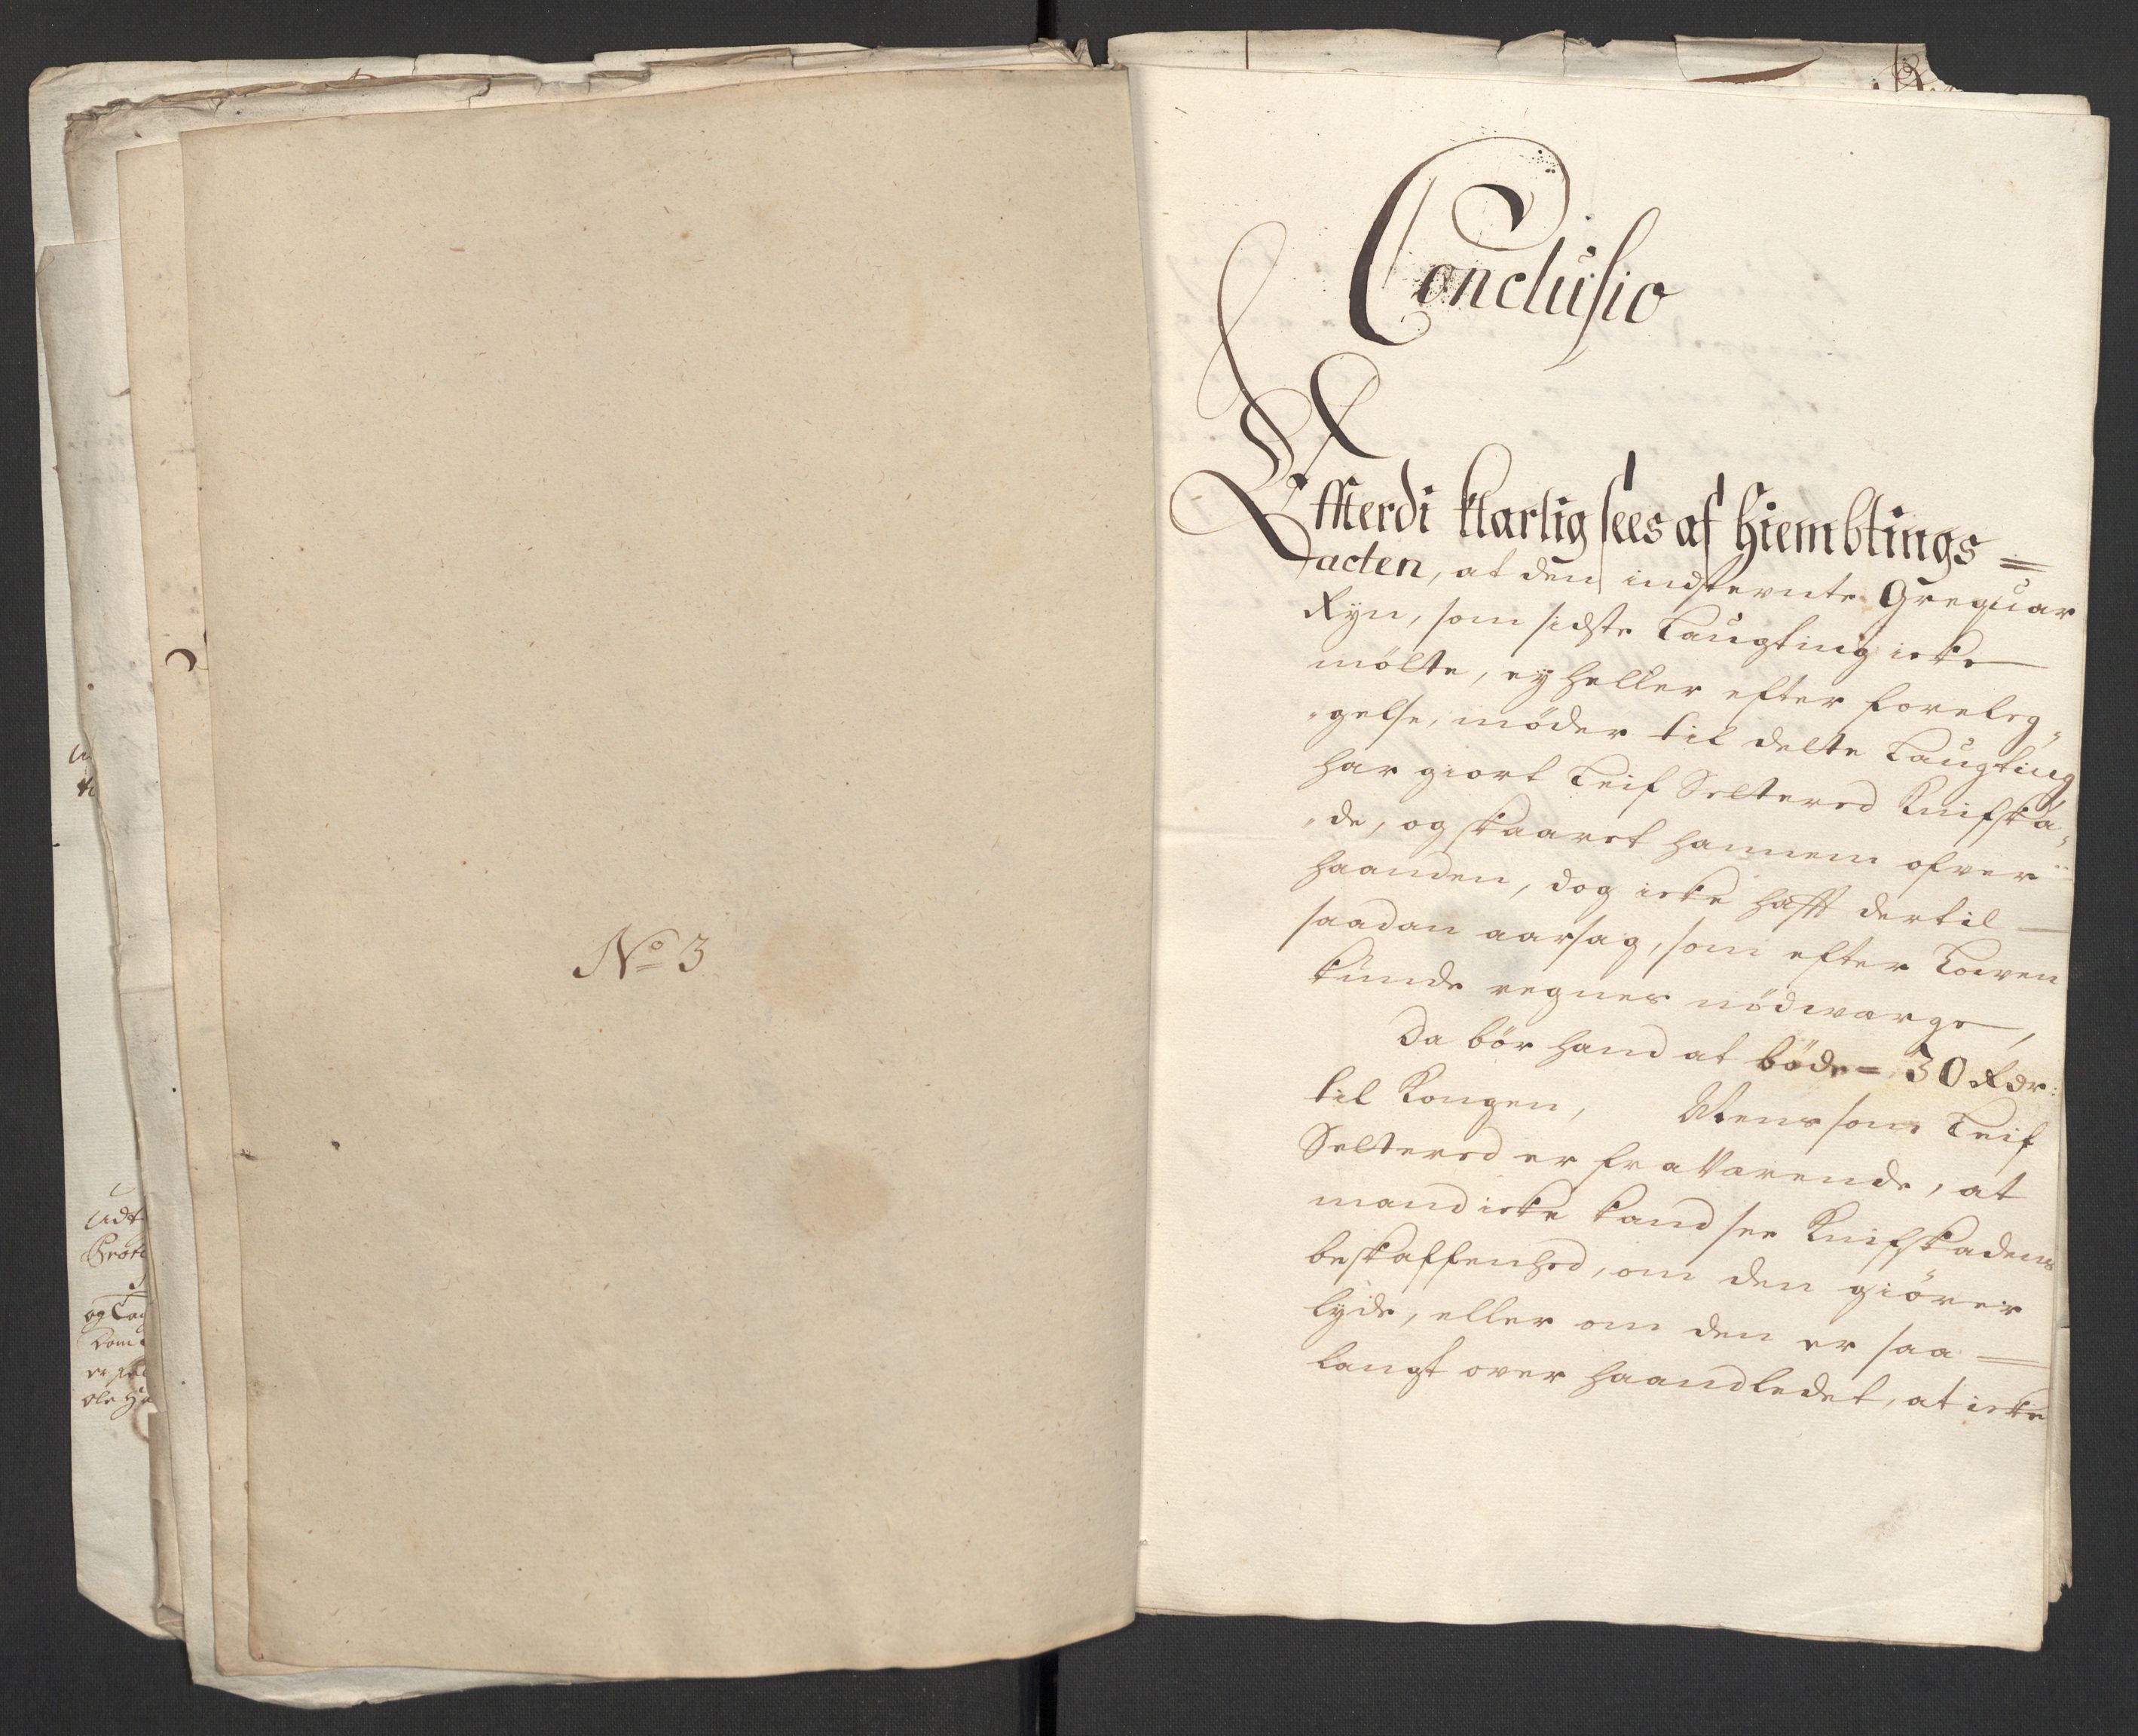 No 3
Conclusio
Effterdi klarlig sees af Hiembtings =
acten, at den indstevnte Greguar
Ryn, som sidste Laugting icke
mötte, ey heller efter foreleg„
„gelse, möder til dette Laugting
har giort Leif Seltered Knifska„
„de, og skaaret hannem ofver
haanden, dog icke hafft dertil
saadan aarsag, som efter Lowen
kunde regnes nödwærge,
Da bör hand at böde = 30 Rdr:
til Kongen, Mens som Leif
Seltered er fraværende, at
mand icke kand see Knifskadens
beskaffenhed, om den giörer
lyde, eller om den er saa
langt over haandledet, at icke
Udt
og La
ole H